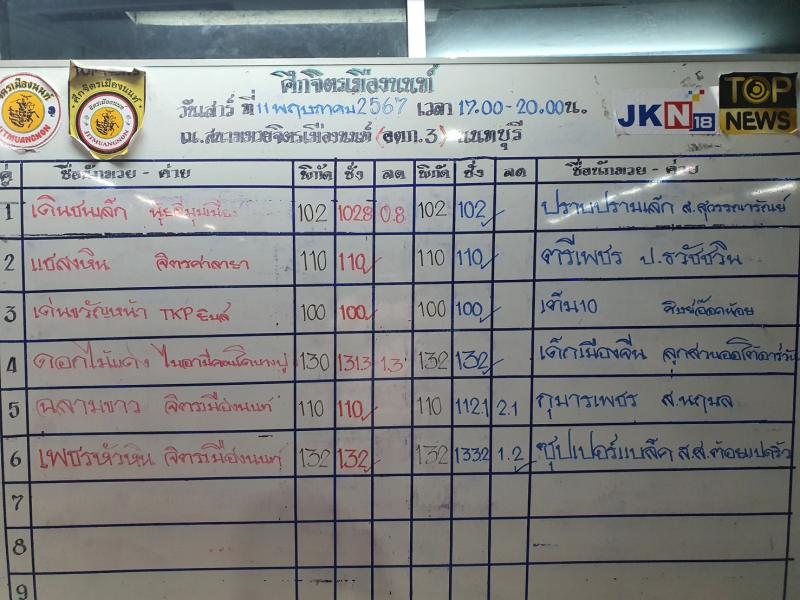 ศึกจิตรเมืองนนท์
วันเสาร์ ที่ 11 พฤษภาคม 2567 เวลา 17.00-20.00 น.
ณ.สนามมวยจิตรเมืองนนท์ (อตก.3) นนทบุรี
ศึกจิตรเมืองนนท์
JITMUANGNON
JITMUANGNON
JKN 18
TOP NEWS
คู่ ชื่อนักมวย - ค่าย พิกัด ชั่ง ลด พิกัด ชั่ง ลด ชื่อนักมวย - ค่าย
1 เดินชนเล็ก 102 102.8 0.8 102 102 ปราบปรามเล็ก ส.สุวรรณารัณย์
2 แสงหิน จิตรศาลายา 110 110 110 110 ตรีเพชร ป.ธวัชชวิน
3 เด่นขวัญหน้า TKP ยิมส์ 100 100 100 100 เต็ม10 ศิษย์อ๊อดน้อย
4 ดอกไม้แดง 130 131.3 1.3 132 132 เด็กเมืองจีน
5 ฉลามขาว จิตรเมืองนนท์ 110 110 110 112.1 2.1 กุมารเพชร ส.นฤมล
6 เพชรหัวหิน จิตรเมืองนนท์ 132 132 132 133.2 1.2 ซุปเปอร์แบล็ค
7
8
9